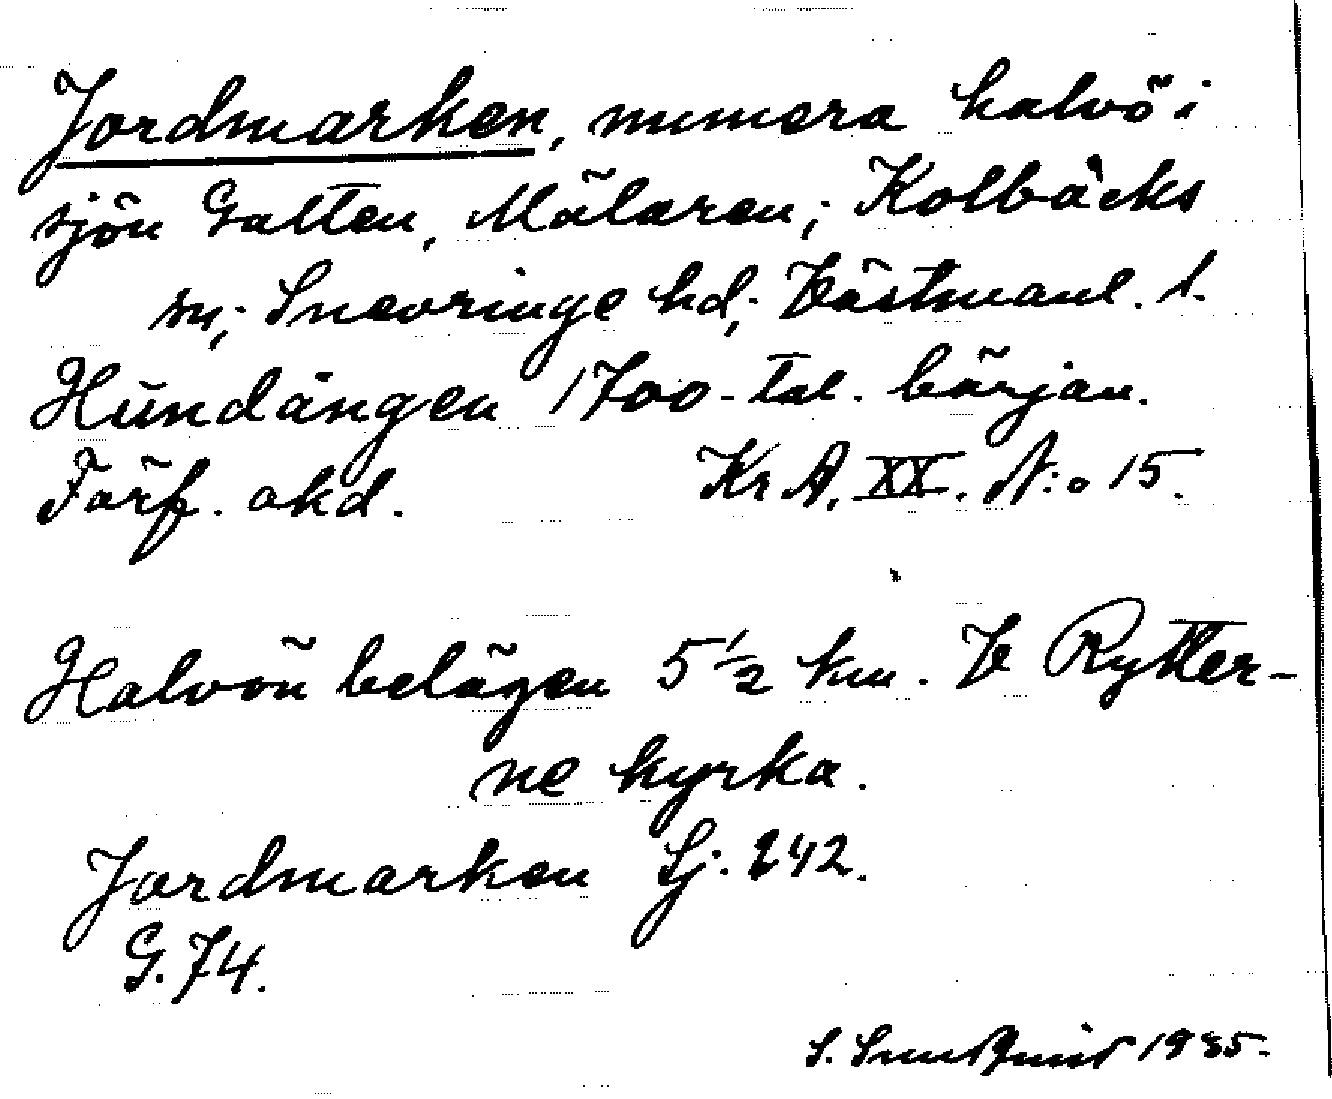 Jordmarken, numera halvö i
sjön Galten, Mälaren; Kolbäcks
sn; Snevringe hd; Västmanl. l.
Hundängen 1700-tal. början.
Förf. okd. Kr A. XX. N:o 15.
Halvön belägen 5 1/2 km. V Rytter-
ne kyrka.
Jordmarken Sj. 242.
G. 74.
S. 1935.